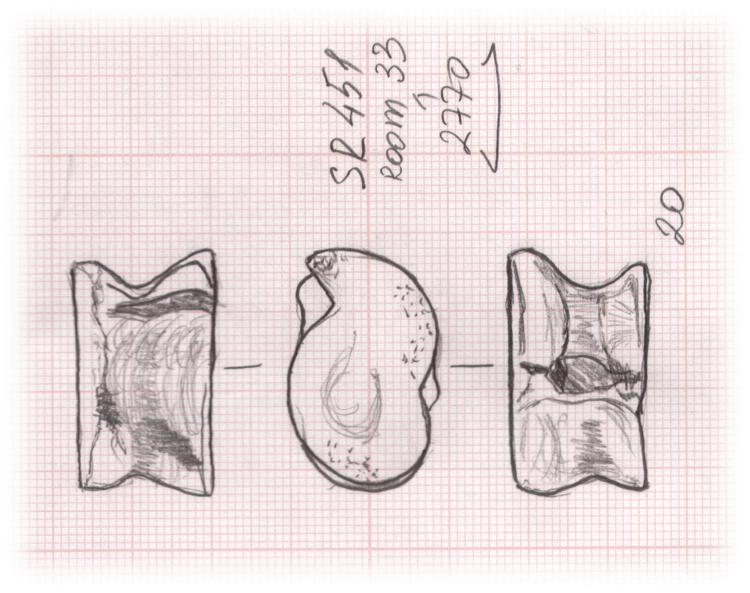 SR 451
ROOM 33
2770
20